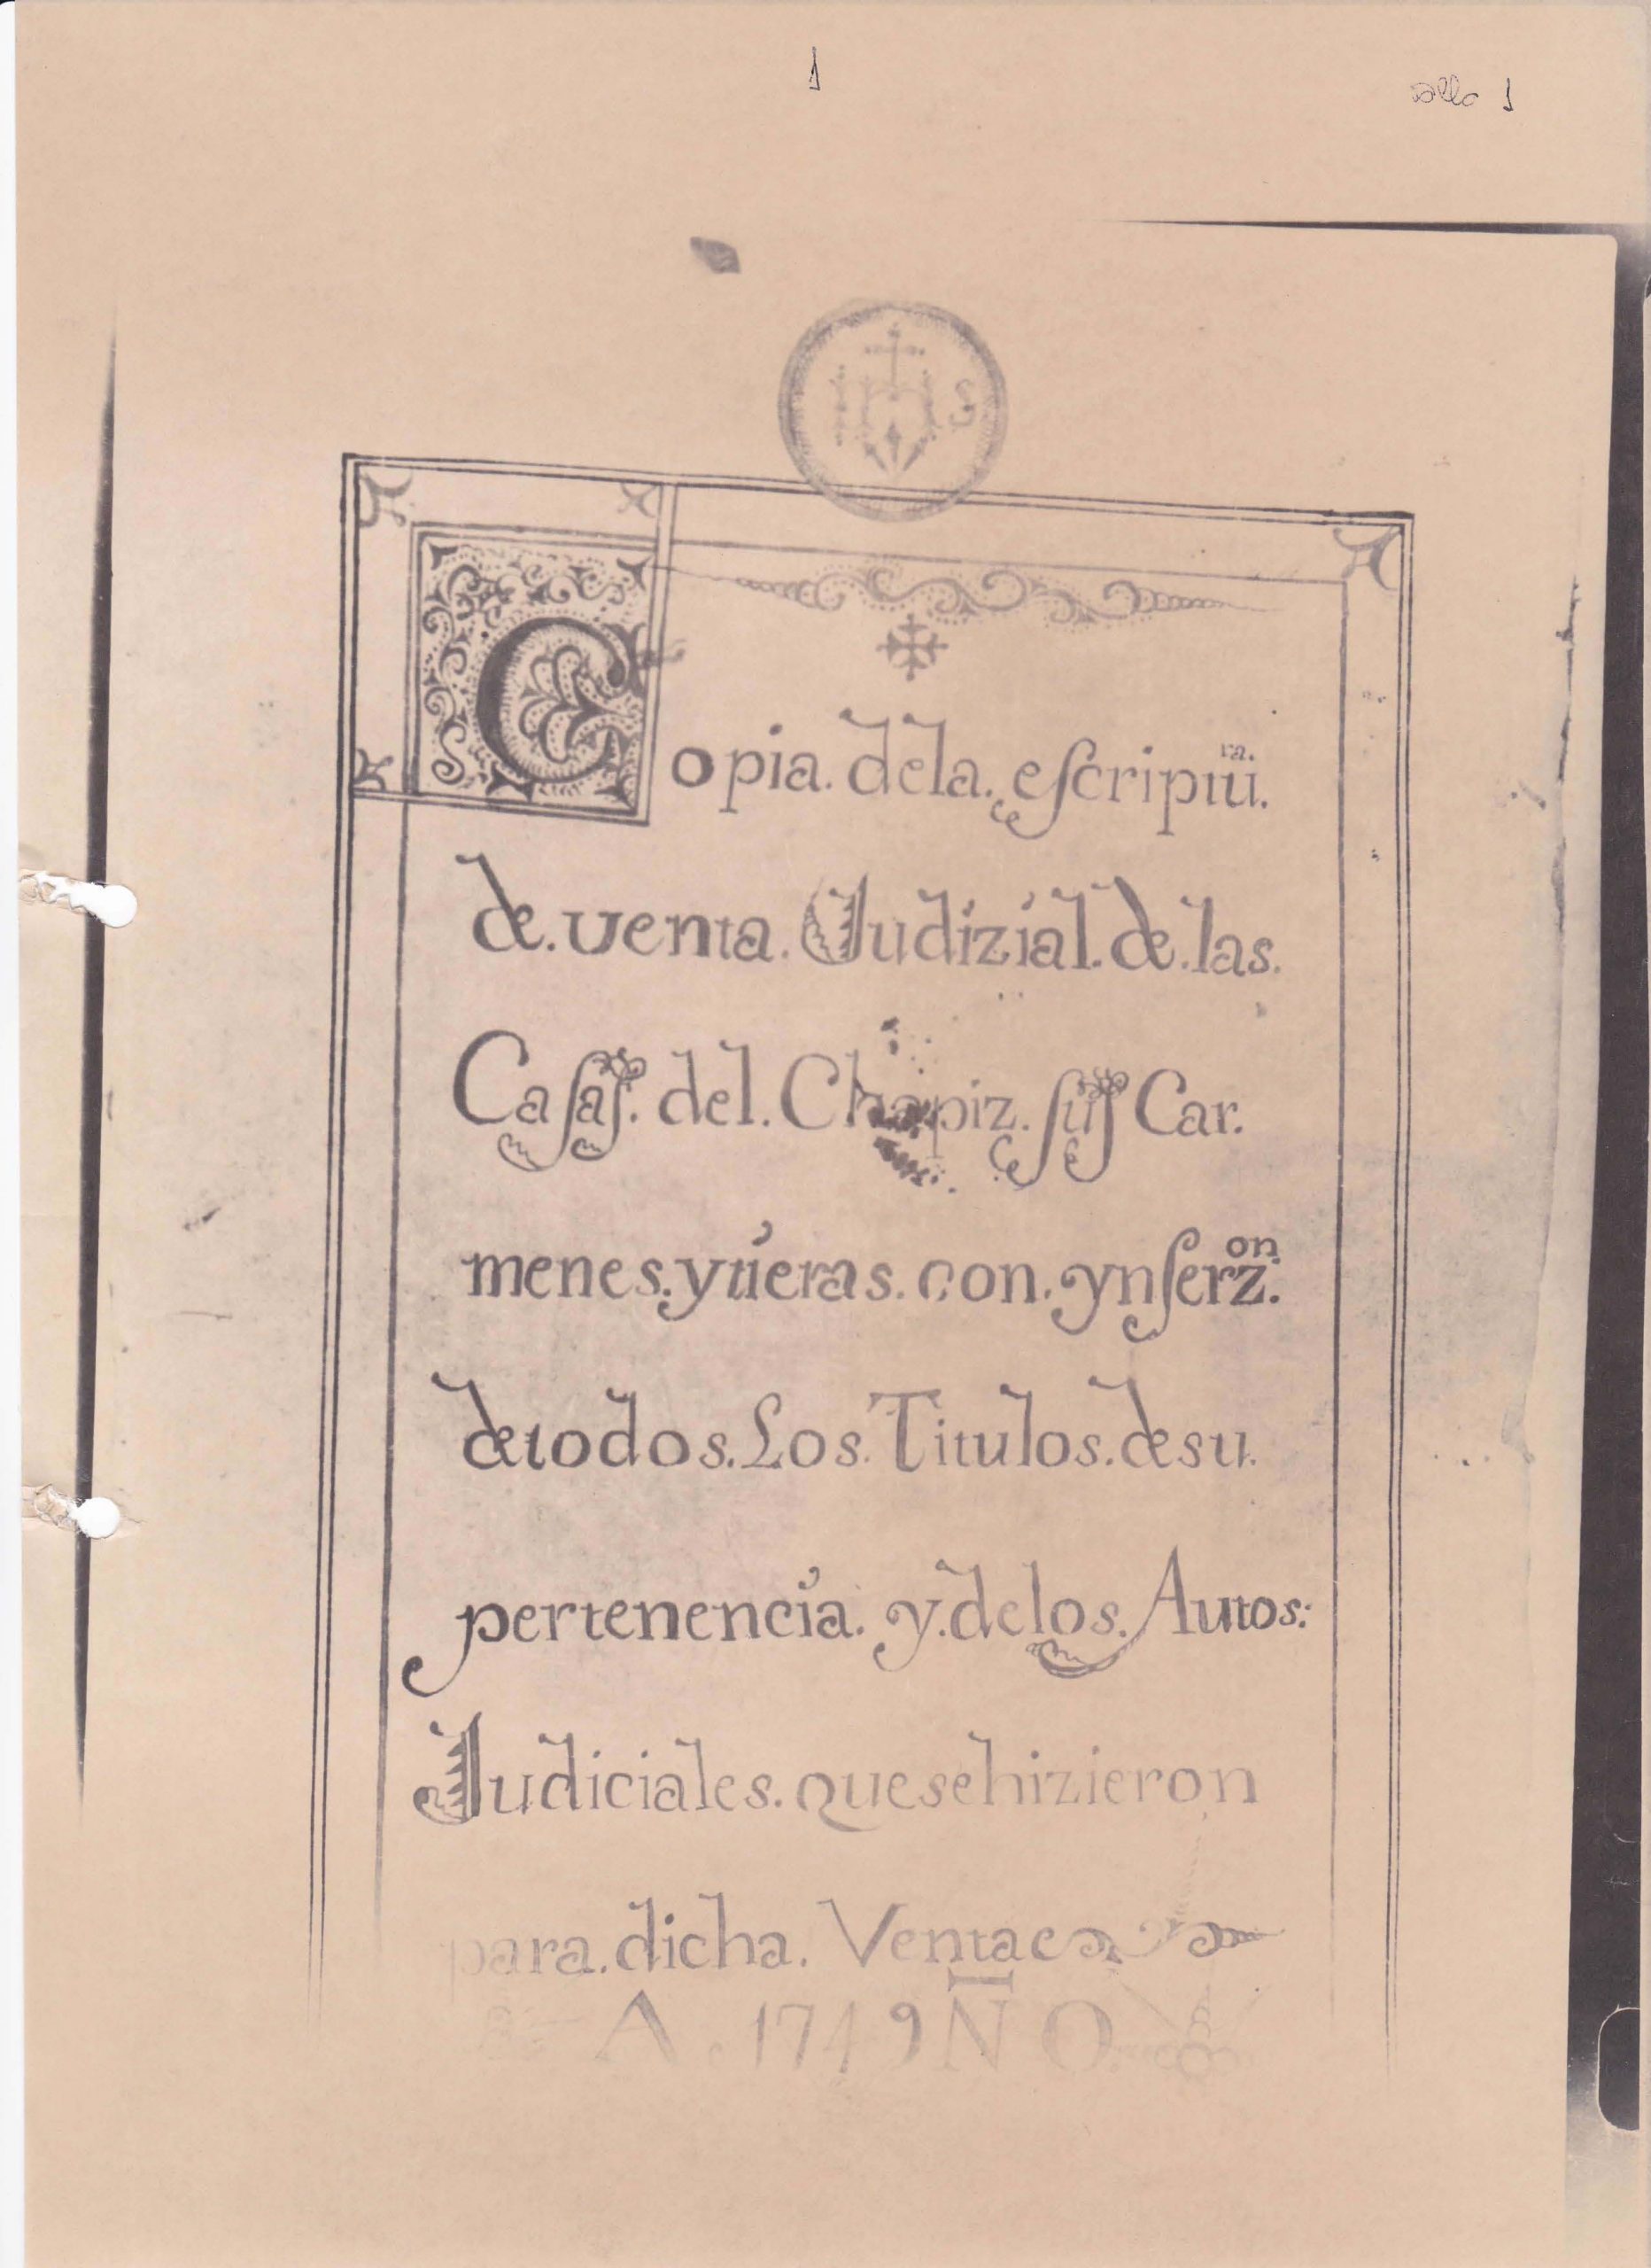 1
1
IHS
Copia. dela. escriptu.ra.
de. venta. Judizial. de. las.
Casas. del. Chapiz. sus Car.
menes. y tieras. con. ynserz.on
de todos. Los. Titulos. de su.
pertenencia. y. de los. Autos:
Judiciales. que se hizieron
para. dicha. Venta
A. 1749 ÑO.